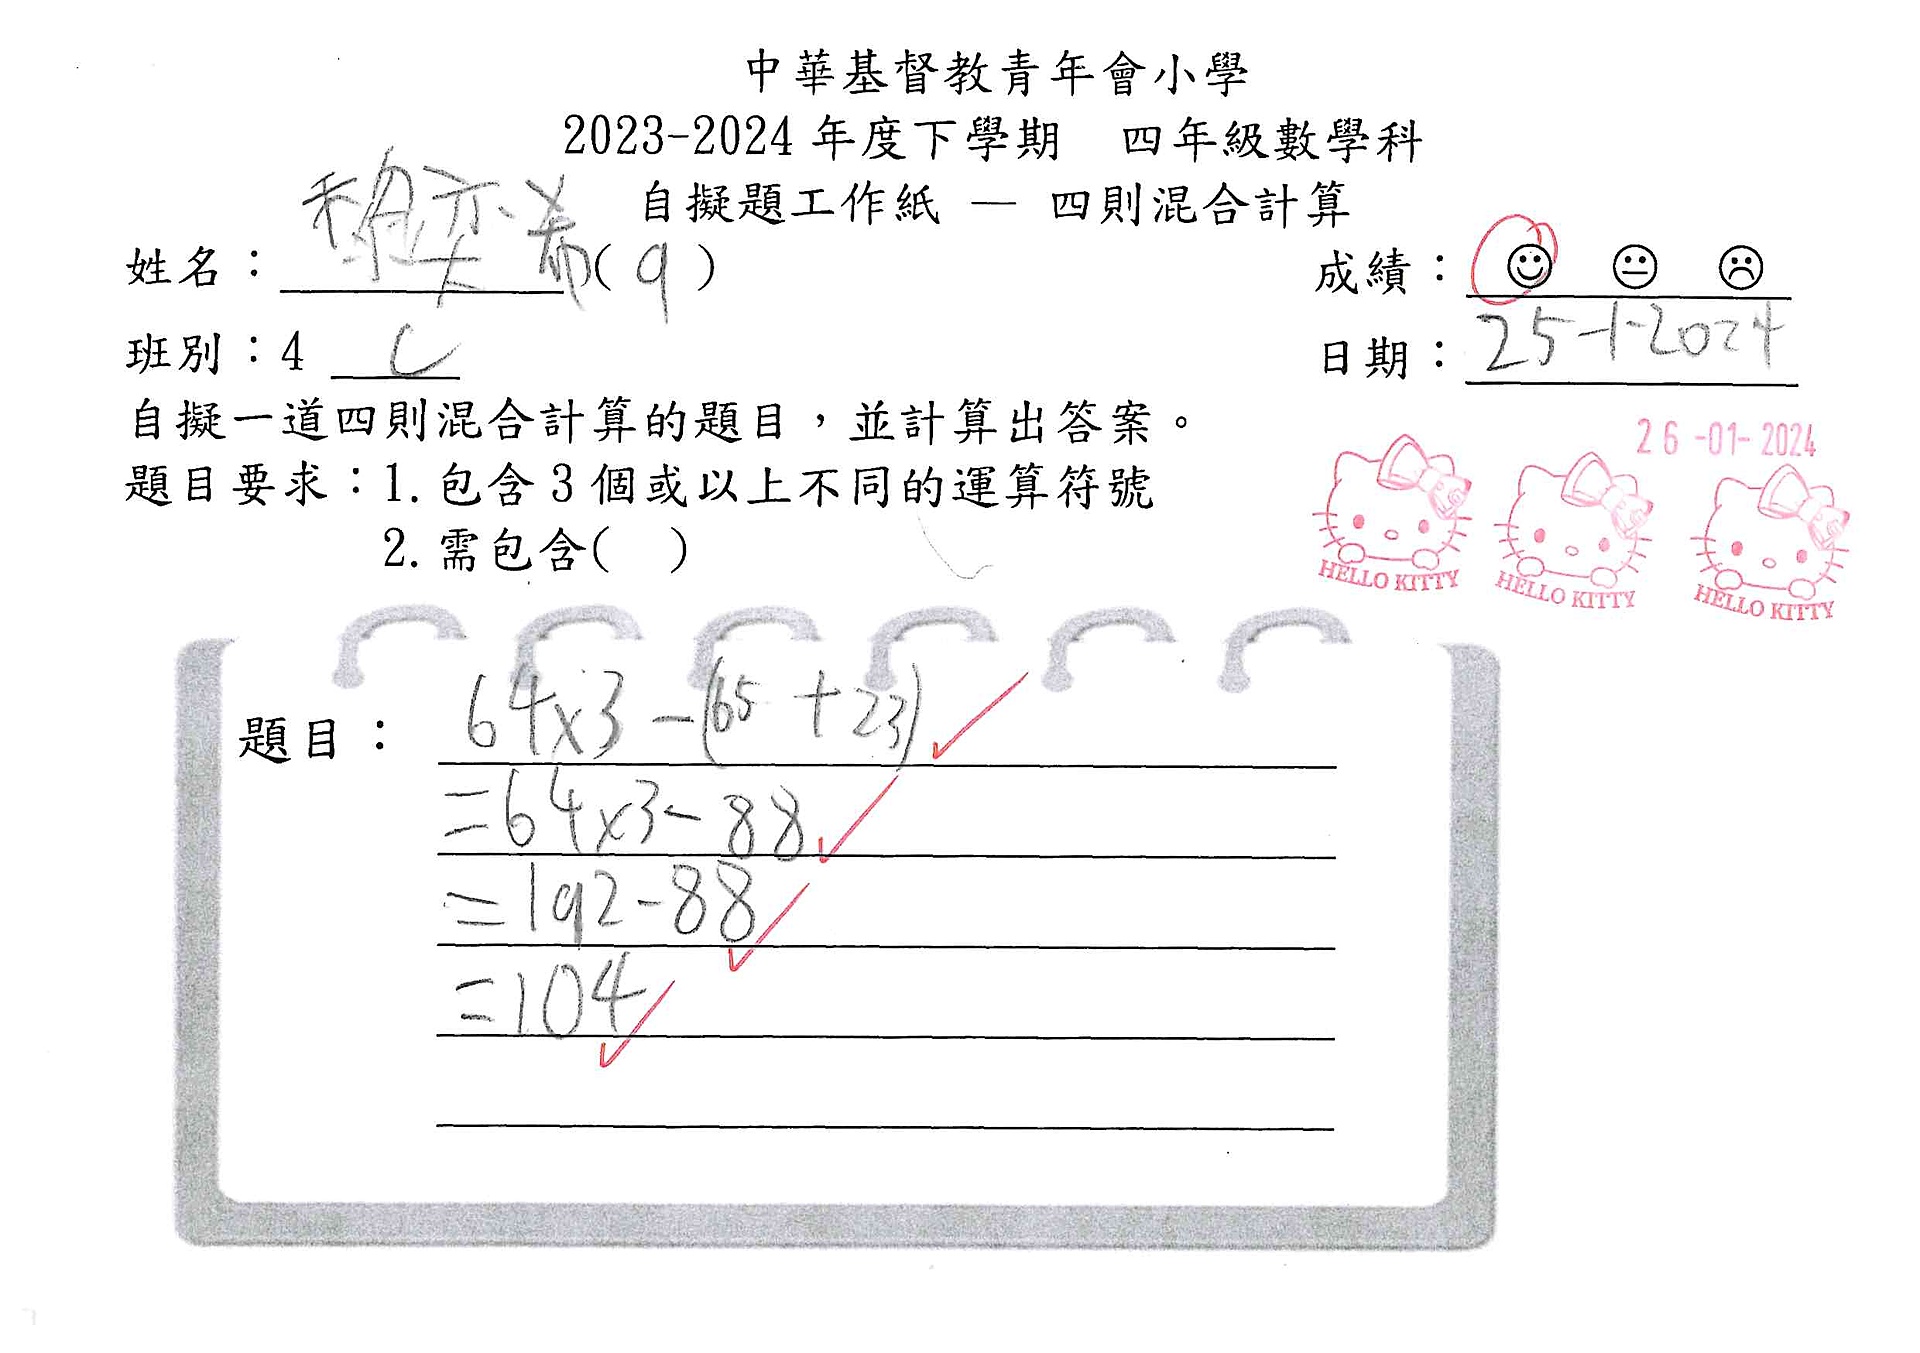 中華基督教青年會小學
2023-2024 年度下學期 四年級數學科
自擬題工作紙 — 四則混合計算
姓名：奕希(9)
成績：
班別：4 C
日期：25-1-2024
自擬一道四則混合計算的題目，並計算出答案。
26-01-2024
題目要求：1. 包含 3 個或以上不同的運算符號
2. 需包含( )
HELLO KITTY HELLO KITTY HELLO KITTY
題目： 64×3-(65+23)
=64×3-88
=192-88
=104